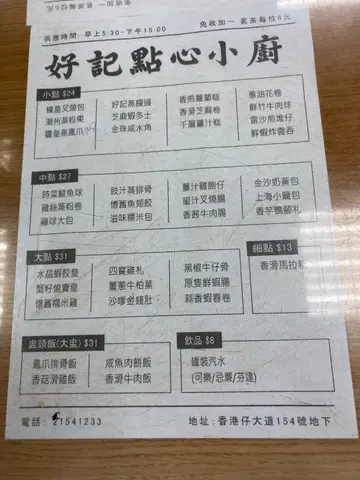 供應時間: 早上5:30-下午15:00
免收加一 茗茶每位6元
好記點心小廚
小點 $24
蠔皇叉燒包
潮州蒸粉果
醬皇蒸鳳爪
好記蒸饅頭
芝麻蝦多士
金珠咸水角
香煎蘿蔔糕
香滑芝麻卷
千層薑汁糕
蔥油花卷
鮮竹牛肉球
雷沙煎堆仔
鮮蝦炸雲吞
中點 $27
時菜鯪魚球
雞絲蒸粉卷
雞球大包
豉汁蒸排骨
懷舊魚翅餃
滋味糯米包
薑汁雞飽仔
蜜汁叉燒腸
香茜牛肉腸
金沙奶黃包
上海小籠包
香芋鴨腳札
大點 $31
水晶蝦餃皇
蟹籽燒賣皇
懷舊糯米雞
四寶雞札
薑蔥牛柏葉
沙嗲金錢肚
黑椒牛仔骨
原隻鮮蝦腸
蒜香蝦春卷
細點 $13
香滑馬拉糕
盅頭飯(大盅) $31
鳳爪排骨飯
香菇滑雞飯
咸魚肉餅飯
香滑牛肉飯
飲品 $8
罐裝汽水
(可樂/忌廉/芬達)
電話: 21541233
地址: 香港仔大道154號地下